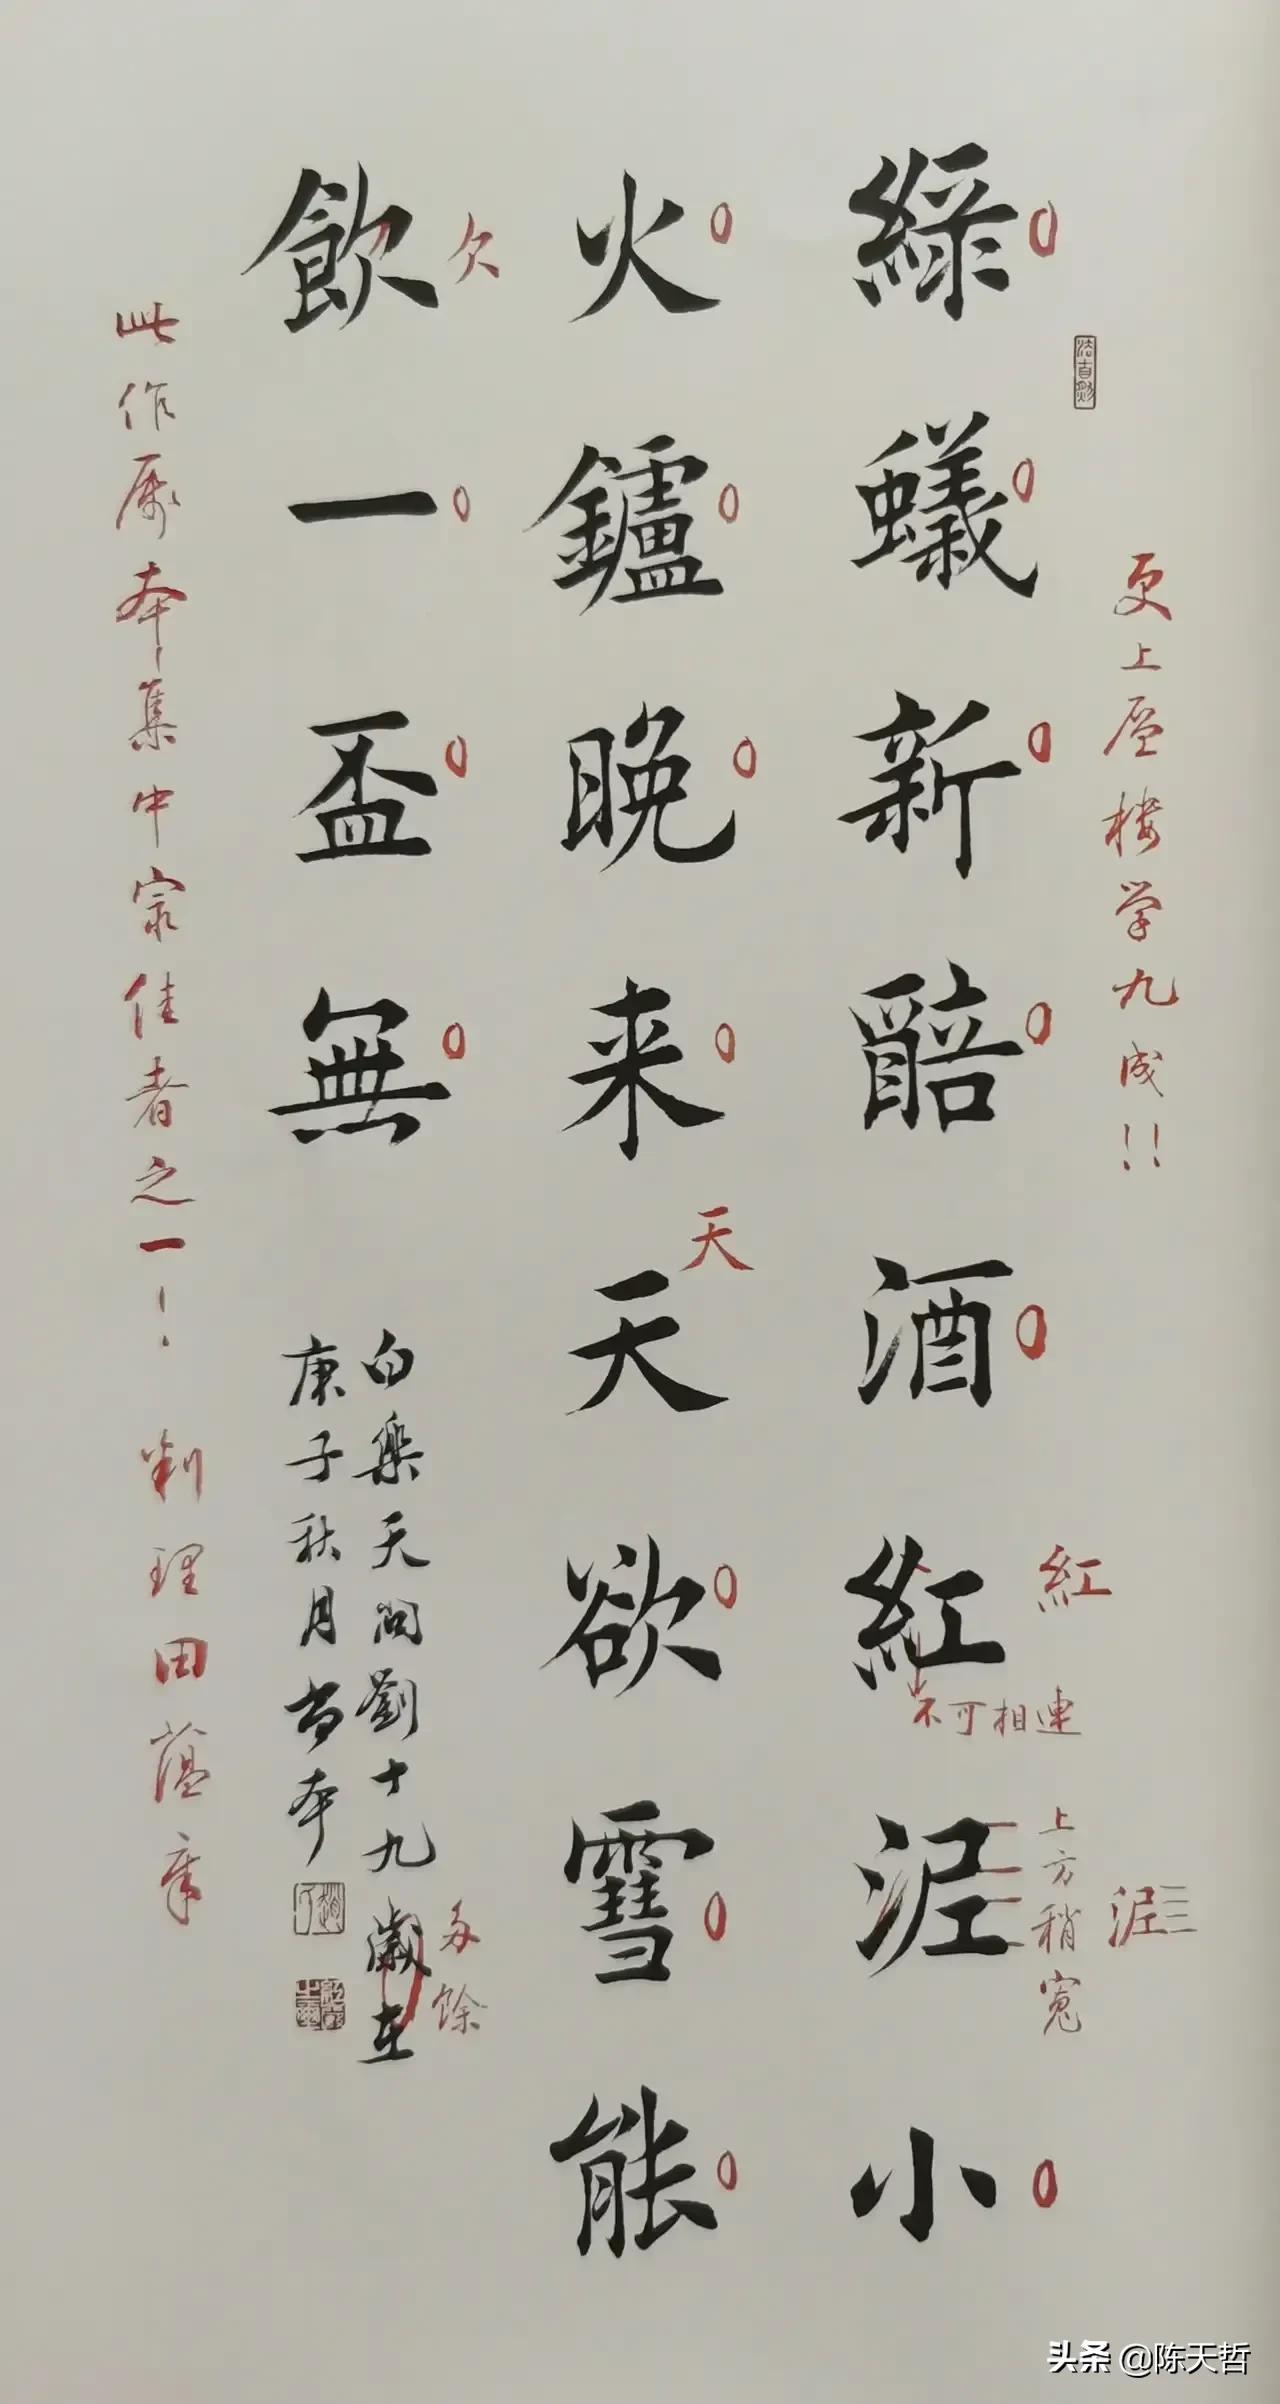 更上层楼学九成!!
綠蟻新醅酒紅泥小
火鑪晚来天欲雪能
飲一盃無
白樂天問劉十九歲在
庚子秋月
此作属本集中最佳者之一!
判理田蕴章
欠
天
紅
不可相連
上方稍寬
泥
多餘
头条 @陈天哲